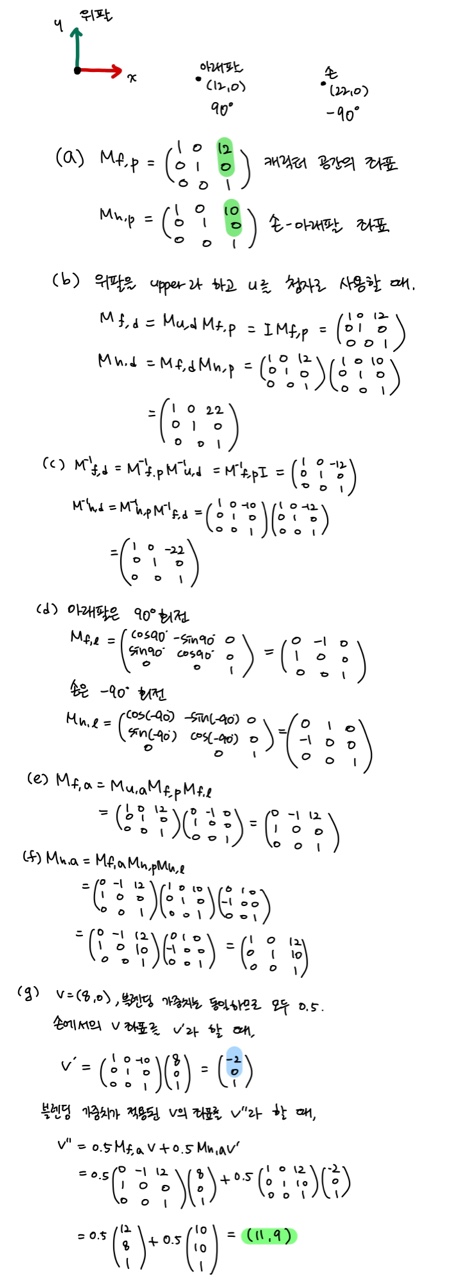 y 위팔
x
아래팔
(12,0)
90°
손
(22,0)
-90°
(a) Mf,p = (1 0 12
0 1 0
0 0 1) 캐릭터 공간의 좌표
Mh,p = (1 0 10
0 1 0
0 0 1) 손-아래팔 좌표
(b) 위팔을 upper라 하고 u를 첨자로 사용할 때.
Mf,d = Mu,d Mf,p = I Mf,p = (1 0 12
0 1 0
0 0 1)
Mh,d = Mf,d Mh,p = (1 0 12
0 1 0
0 0 1)(1 0 10
0 1 0
0 0 1)
= (1 0 22
0 1 0
0 0 1)
(c) M⁻¹f,d = M⁻¹f,p M⁻¹u,d = M⁻¹f,p I = (1 0 -12
0 1 0
0 0 1)
M⁻¹h,d = M⁻¹h,p M⁻¹f,d = (1 0 -10
0 1 0
0 0 1)(1 0 -12
0 1 0
0 0 1)
= (1 0 -22
0 1 0
0 0 1)
(d) 아래팔은 90° 회전
Mf,l = (cos90° -sin90° 0
sin90° cos90° 0
0 0 1) = (0 -1 0
1 0 0
0 0 1)
손은 -90° 회전
Mh,l = (cos(-90) -sin(-90) 0
sin(-90) cos(-90) 0
0 0 1) = (0 1 0
-1 0 0
0 0 1)
(e) Mf,a = Mu,a Mf,p Mf,l
= (1 0 12
0 1 0
0 0 1)(0 -1 0
1 0 0
0 0 1) = (0 -1 12
1 0 0
0 0 1)
(f) Mh,a = Mf,a Mh,p Mh,l
= (0 -1 12
1 0 0
0 0 1)(1 0 10
0 1 0
0 0 1)(0 1 0
-1 0 0
0 0 1)
= (0 -1 12
1 0 10
0 0 1)(0 1 0
-1 0 0
0 0 1) = (1 0 12
0 1 10
0 0 1)
(g) v=(8,0), 블렌딩 가중치는 동일하므로 모두 0.5.
손에서의 v 좌표를 v'라 할 때,
v' = (1 0 -10
0 1 0
0 0 1)(8
0
1) = (-2
0
1)
블렌딩 가중치가 적용된 v의 좌표를 v''라 할 때,
v'' = 0.5 Mf,a v + 0.5 Mh,a v'
= 0.5(0 -1 12
1 0 0
0 0 1)(8
0
1) + 0.5(1 0 12
0 1 10
0 0 1)(-2
0
1)
= 0.5(12
8
1) + 0.5(10
10
1) = (11,9)